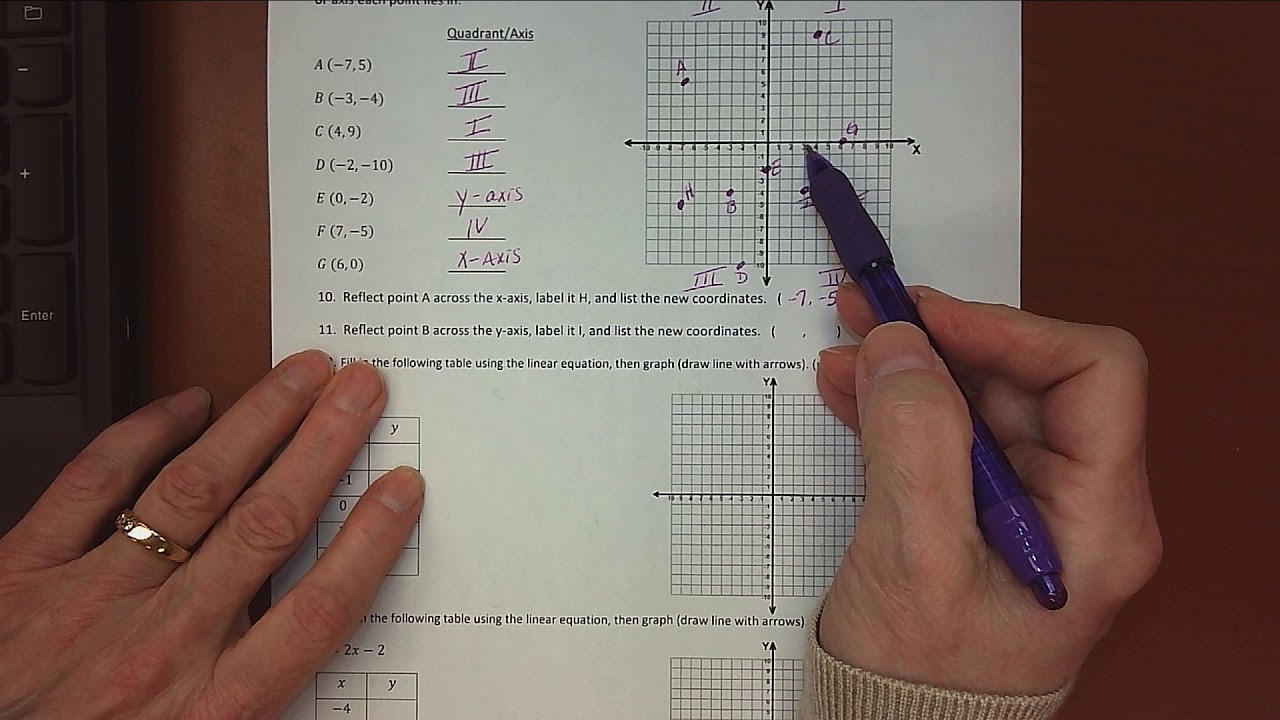 or axis each point lies in.
Quadrant/Axis
A (−7, 5) II
B (−3, −4) III
C (4, 9) I
D (−2, −10) III
E (0, −2) y-axis
F (7, −5) IV
G (6, 0) x-Axis
10. Reflect point A across the x-axis, label it H, and list the new coordinates. ( -7, -5
11. Reflect point B across the y-axis, label it I, and list the new coordinates. ( , )
the following table using the linear equation, then graph (draw line with arrows). (
y
−1
0
the following table using the linear equation, then graph (draw line with arrows)
2x − 2
x y
−4
II Y I
C
A
G
X
E
H
B
III D
Y
Y
Enter
+
−